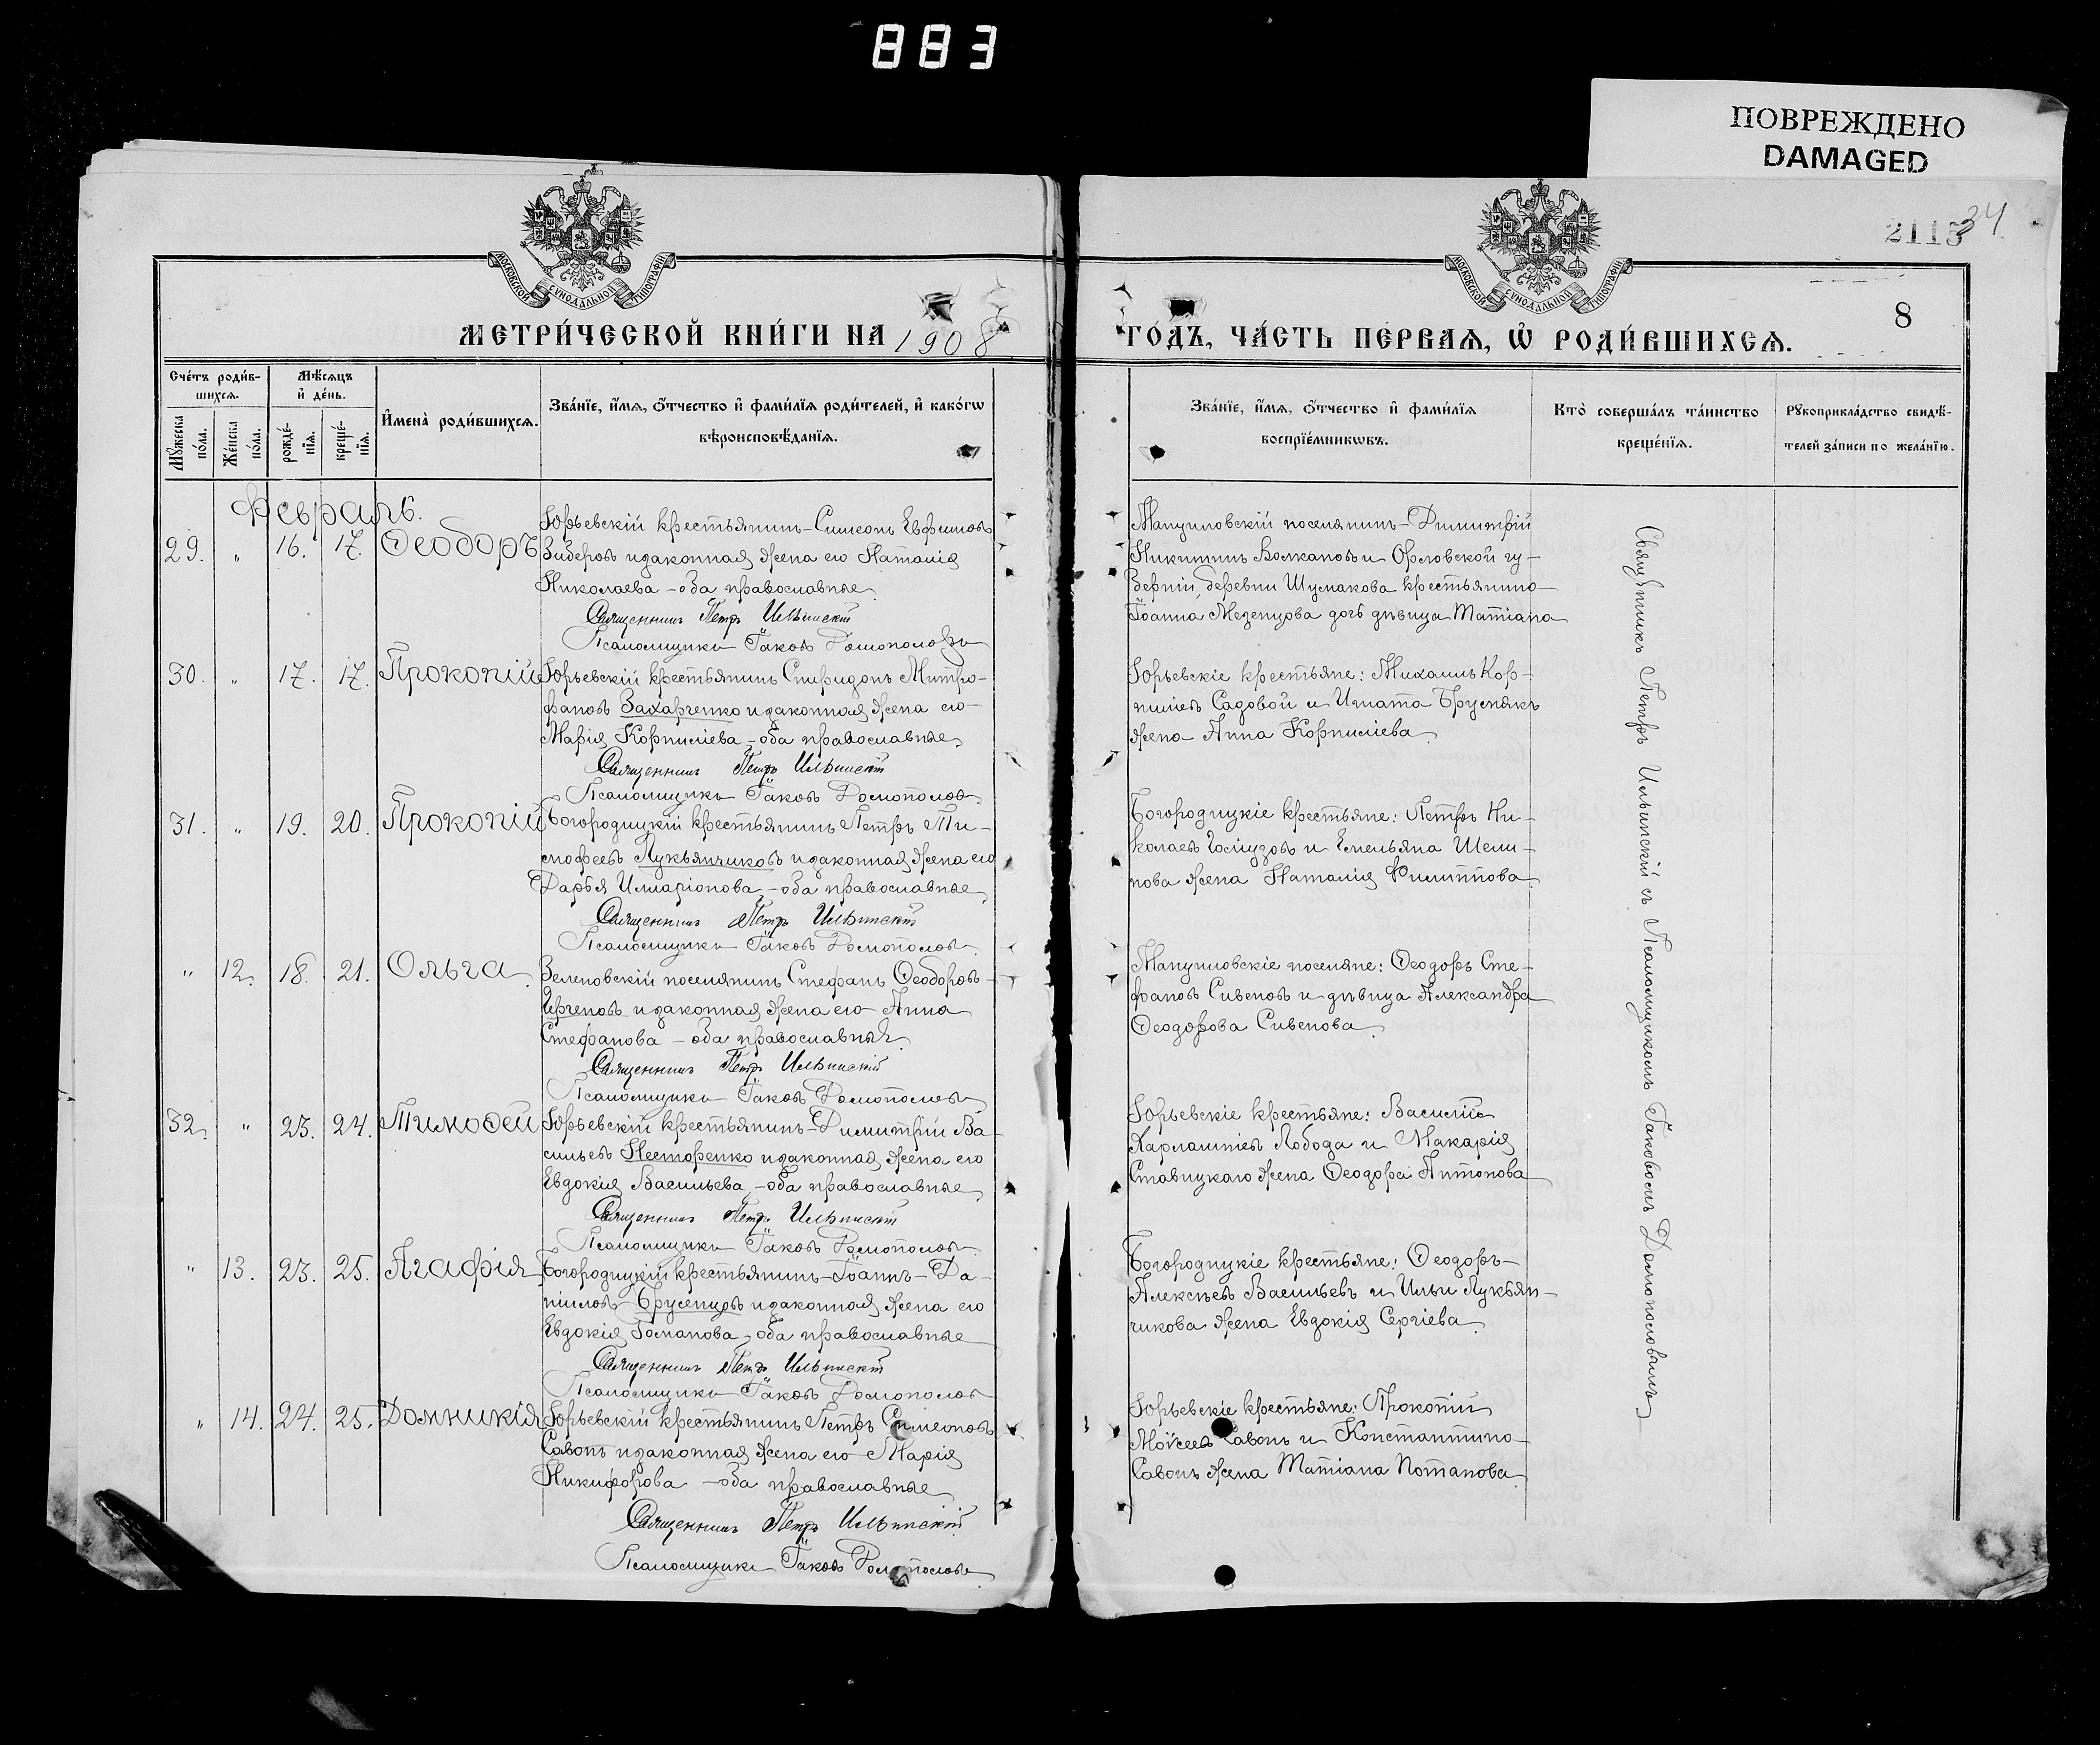 883
ПОВРЕЖДЕНО
DAMAGED
2115
34
МОСКОВСКОЙ СѴНОДАЛЬНОЙ ТИПОГРАФІИ
МОСКОВСКОЙ СѴНОДАЛЬНОЙ ТИПОГРАФІИ
8
МЕТРИ́ЧЕСКОЙ КНИ́ГИ НА 1908
ГО́ДЪ, ЧА́СТЬ ПЕ́РВАѦ, Ѽ РОДИ́ВШИХСѦ.
Сче́тъ роди́в-
шихсѧ.
Мꙋжеска по́ла.
Же́нска по́ла.
Мѣ́сѧцъ
и҆ де́нь.
рожде́-
нїѧ.
креще́-
нїѧ.
И҆мена̀ роди́вшихсѧ.
Зва́нїе, и҆́мѧ, ѻ҆́тчество и҆ фами́лїѧ роди́телей, и҆ како́гѡ
вѣроисповѣ́данїѧ.
Зва́нїе, и҆́мѧ, ѻ҆́тчество и҆ фами́лїѧ
воспрїе́мникѡвъ.
Кто̀ соверша́лъ та́инство
креще́нїѧ.
Рꙋкоприкла́дство свидѣ́-
телей за́писи по жела́нїю.
Февраль.
29. " 16. 17. Ѳеодоръ
Юрьевскій крестьянинъ Симеонъ Евфимовъ
Зиберовъ и законная жена его Наталія
Николаева - оба православные
Священникъ Петръ Ильинскій
Псаломщикъ Іаковъ Домополовъ
Манушовскій поселянинъ Димитрій
Никитинъ Волкановъ и Орловской гу-
берніи, деревни Шумакова крестьянина
Іоанна Мезенцова дочь дѣвица Татіана
30. " 17. 17. Прокопій
Юрьевскій крестьянинъ Спиридонъ Митро-
фановъ Захарченко и законная жена его
Марія Корниліева - оба православные
Священникъ Петръ Ильинскій
Псаломщикъ Іаковъ Домополовъ
Юрьевскіе крестьяне: Михаилъ Кор-
ниліевъ Садовой и Игната Бруснякъ
жена Анна Корниліева
31. " 19. 20. Прокопій
Богородицкій крестьянинъ Петръ Ти-
мофеевъ Лукьянчиковъ и законная жена его
Дарья Илларіонова - оба православные
Священникъ Петръ Ильинскій
Псаломщикъ Іаковъ Домополовъ
Богородицкіе крестьяне: Петръ Ни-
колаевъ и Емельяна Шели-
нова жена Наталія Филиппова
" 12. 18. 21. Ольга
Зеленовскій поселянинъ Стефанъ Ѳеодоровъ
Ирченовъ и законная жена его Анна
Стефанова - оба православныя
Священникъ Петръ Ильинскій
Псаломщикъ Іаковъ Домополовъ
Манушовскіе поселяне: Ѳеодоръ Сте-
фановъ Сивеновъ и дѣвица Александра
Ѳеодорова Сивенова
32. " 23. 24. Тимоѳей
Юрьевскій крестьянинъ Димитрій Ва-
сильевъ Несторенко и законная жена его
Евдокія Васильева - оба православные
Священникъ Петръ Ильинскій
Псаломщикъ Іаковъ Домополовъ
Юрьевскіе крестьяне: Василій
Харлампіевъ Лобода и Макарія
Ставицкаго жена Ѳеодора Антонова
" 13. 23. 25. Агафія
Богородицкій крестьянинъ Іоаннъ Да-
ніиловъ Брусенцовъ и законная жена его
Евдокія Романова - оба православные
Священникъ Петръ Ильинскій
Псаломщикъ Іаковъ Домополовъ
Богородицкіе крестьяне: Ѳеодоръ
Алексѣевъ Васильевъ и Ильи Лукьян-
чикова жена Евдокія Сергіева
" 14. 24. 25. Домникія
Юрьевскій крестьянинъ Петръ Симеоновъ
Савонъ и законная жена его Марія
Никифорова - оба православные
Священникъ Петръ Ильинскій
Псаломщикъ Іаковъ Домополовъ
Юрьевскіе крестьяне: Прокопій
Моисеевъ Савонъ и Константина
Савонъ жена Татіана Потапова
Священникъ Петръ Ильинскій съ Псаломщикомъ Іаковомъ Домополовымъ